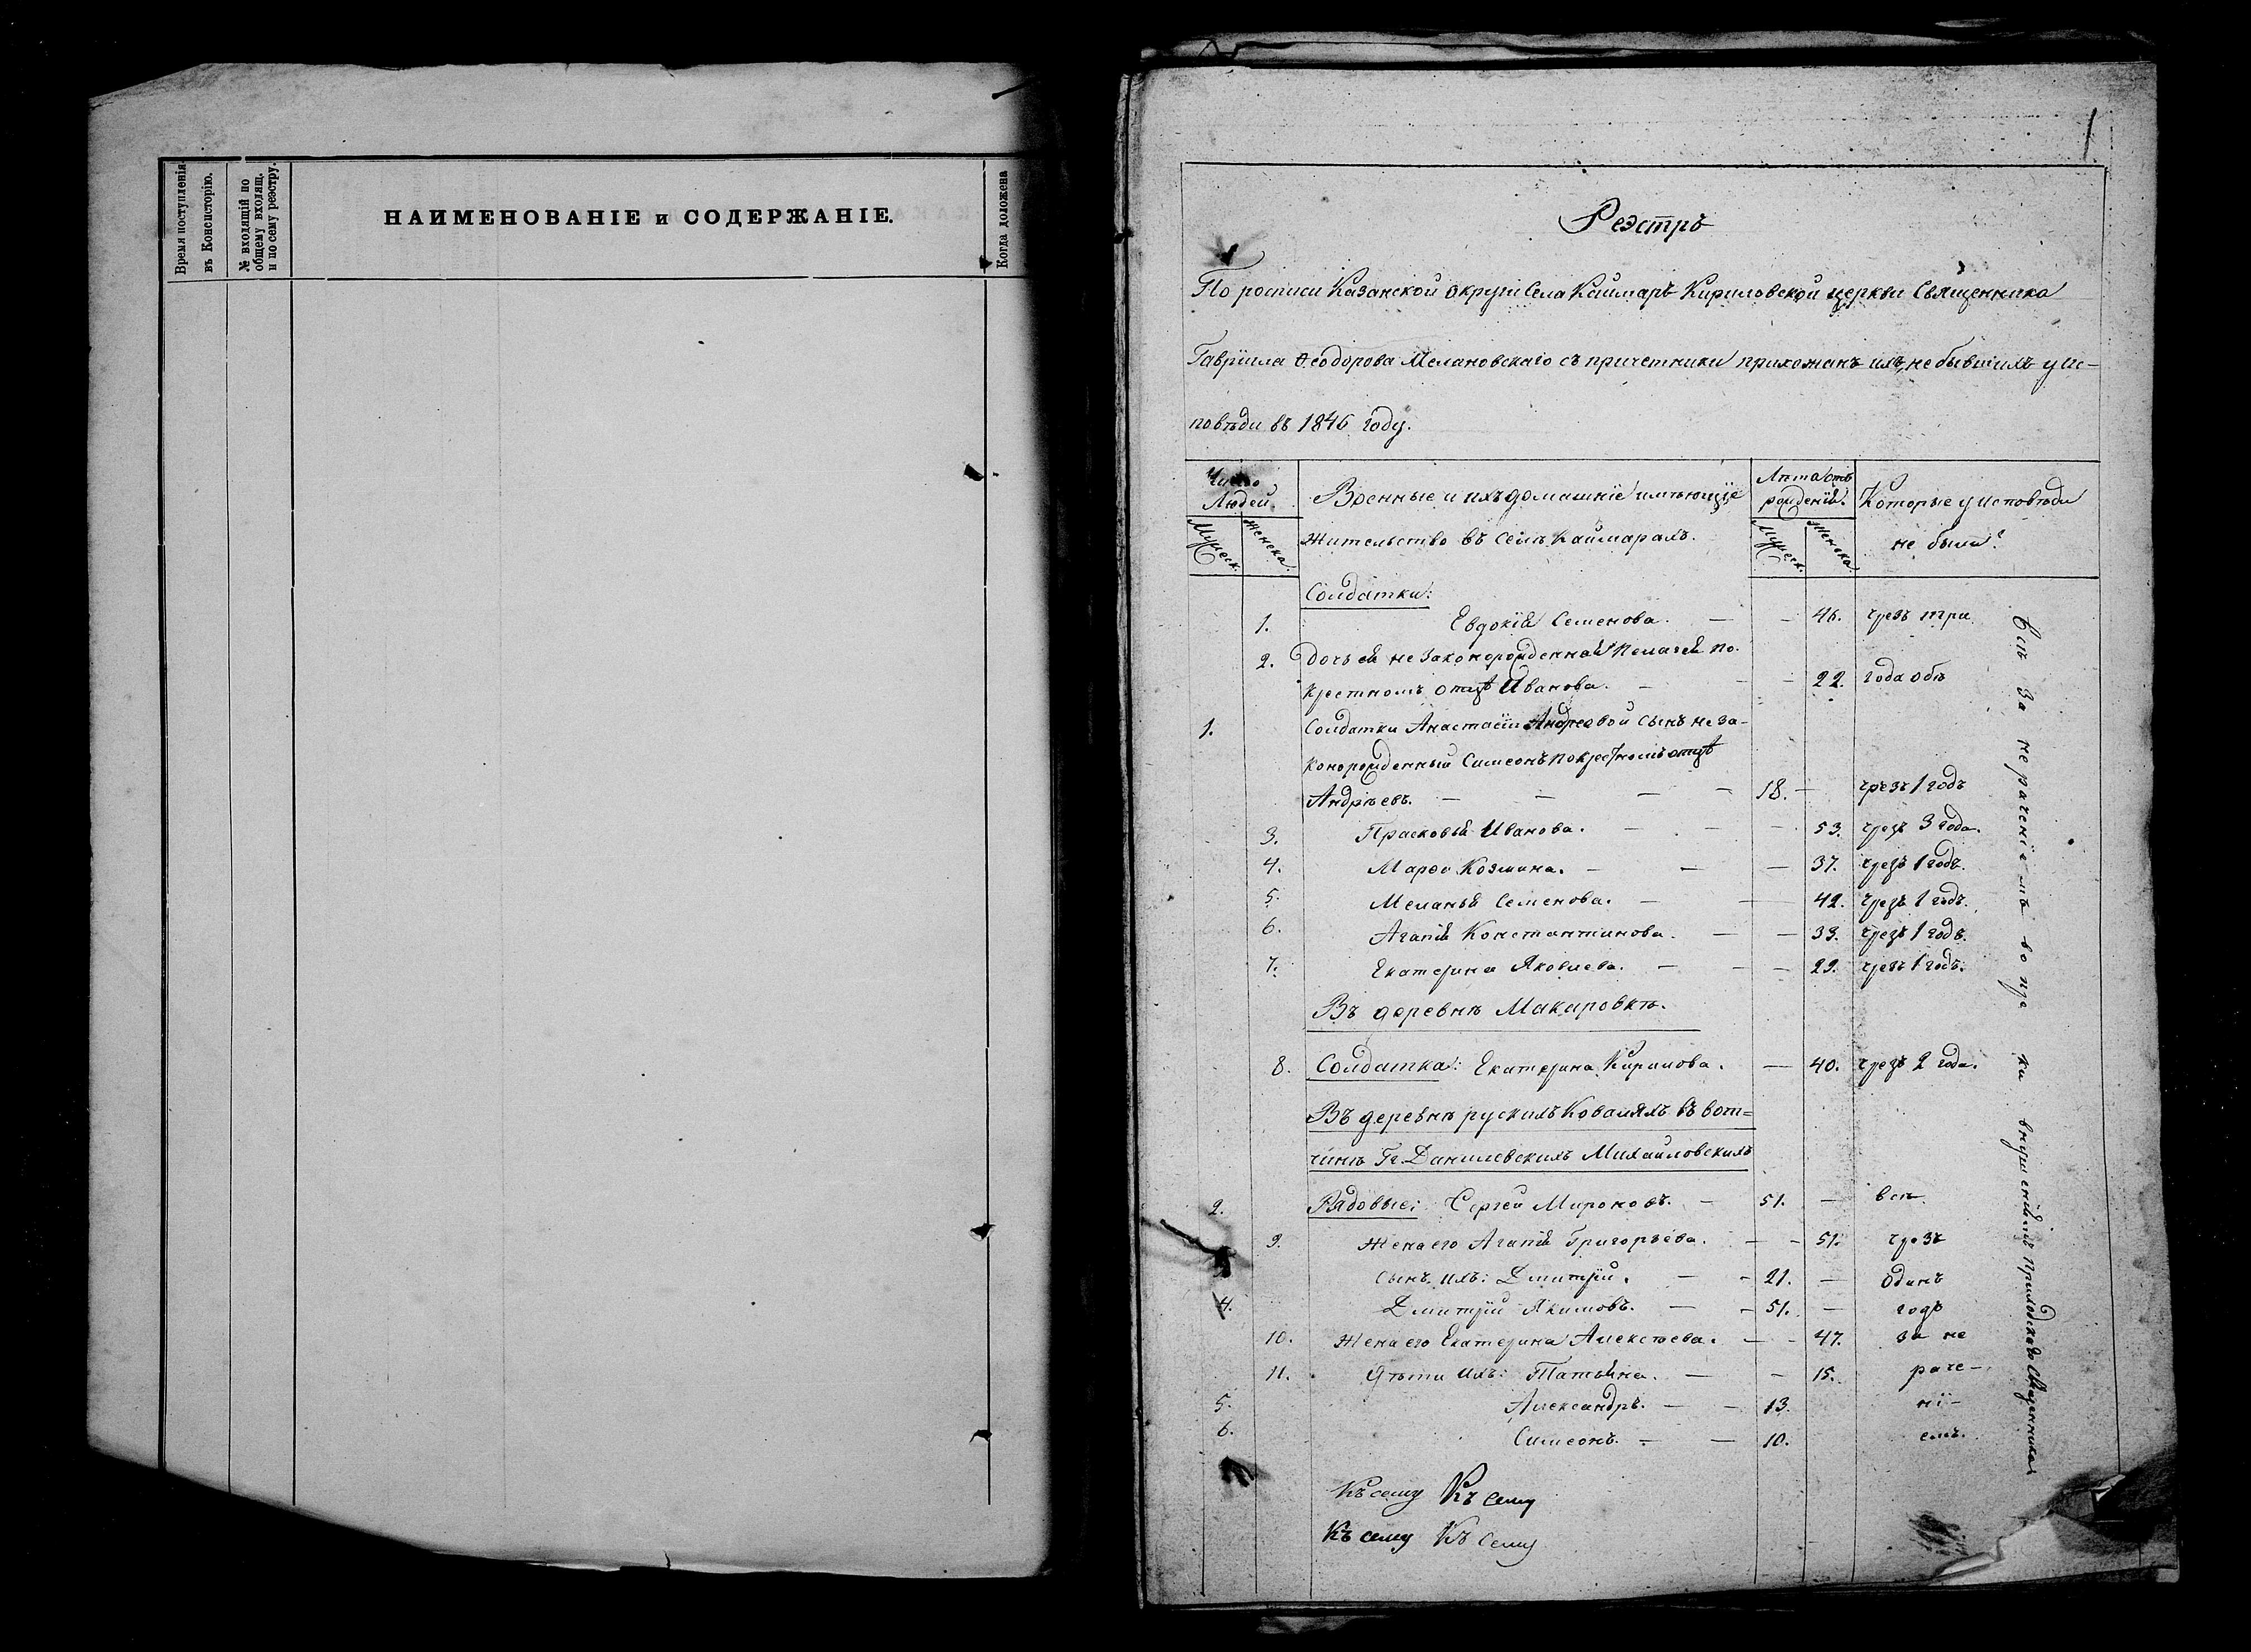 Время поступленія
въ Консисторію.
№ входящій по
общему входящ.
и по сему реэстру.
НАИМЕНОВАНІЕ и СОДЕРЖАНІЕ.
Когда доложена
1
Реэстръ
По росписи Казанской округи Села Каймаръ Кириловской церкви Священника
Гавріила Ѳеодорова Мелановскаго съ причетники прихожанъ ихъ, не бывшихъ у ис-
повѣди въ 1846 году.
Число
Людей.
Мужеск.
Женска.
Военные и ихъ домашніе имѣющіе
жительство въ селѣ Каймарахъ.
Лѣта отъ
рожденія.
Мужеск.
Женска.
Которые у исповѣди
не были?
Солдатки:
1. Евдокія Семенова. — — 46. чрезъ три
2. Дочь ея незаконорожденная Пелагея по
крестномъ отцѣ Иванова. — — 22. года обѣ
1. Солдатки Анастасіи Андреевой сынъ неза-
конорожденный Симеонъ по крестномъ отцѣ
Андрѣевъ. — — — — 18. — чрезъ 1 годъ
3. Прасковья Иванова. — — — 53. чрезъ 3 года.
4. Марѳа Козмина. — — — 37. чрезъ 1 годъ.
5. Меланья Семенова. — — 42. чрезъ 1 годъ.
6. Агапія Константинова. — — 33. чрезъ 1 годъ.
7. Екатерина Яковлева. — — — 29. чрезъ 1 годъ.
Въ деревнѣ Макаровкѣ.
8. Солдатка: Екатерина Кирилова. — 40. чрезъ 2 года.
Въ деревнѣ рускихъ Коваляхъ въ вот=
чинѣ Гг. Данилевскихъ Михайловскихъ
2. Рядовые: Сергей Мироновъ. — 51. — всѣ
9. Жена его Агапія Григорьева. — — 51. чрезъ
Сынъ ихъ: Дмитрій. — — 21. — одинъ
4. Дмитрій Якимовъ. — — 51. — годъ
10. Жена его Екатерина Алексѣева. — — 47. за не
11. Дѣти ихъ: Татьяна. — — 15. раче-
5. Александръ. — — 13. ні-
6. Симеонъ. — — 10. емъ.
Къ сему Къ сему
Къ сему Къ сему
Всѣ за нераченіемъ вопреки внушеніямъ приходскаго Священника